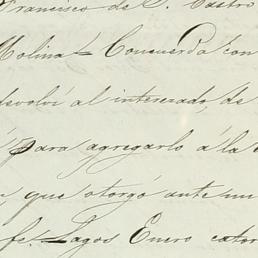 Francisco de P. Castro
Molina = Concuerda con
devolví al interezado, de
para agregarlo á la
que otorgó ante mi
fe. Lagos Enero cator